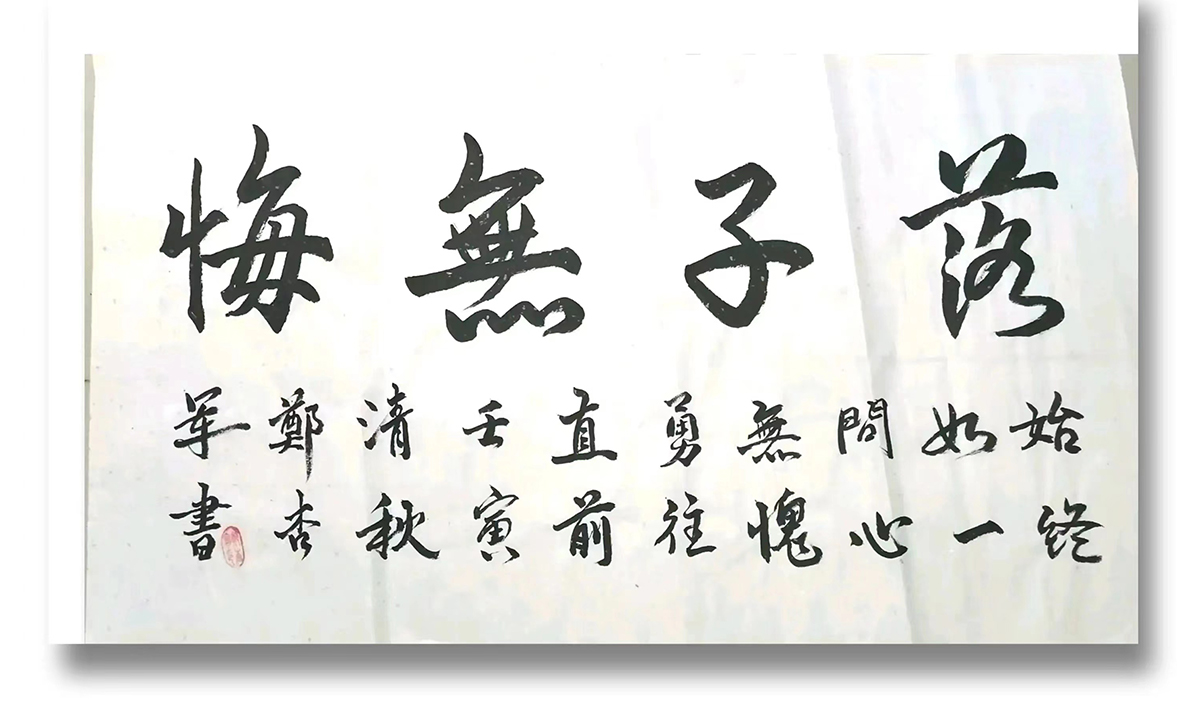 落子無悔
始終
如一
問心
無愧
勇往
直前
壬寅
清秋
鄭杏
军書